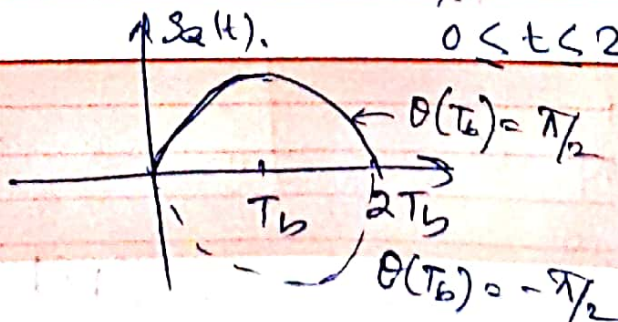 S_Q(t). 0 ≤ t ≤ 2
θ(T_b) = π/2
T_b 2T_b
θ(T_b) = -π/2